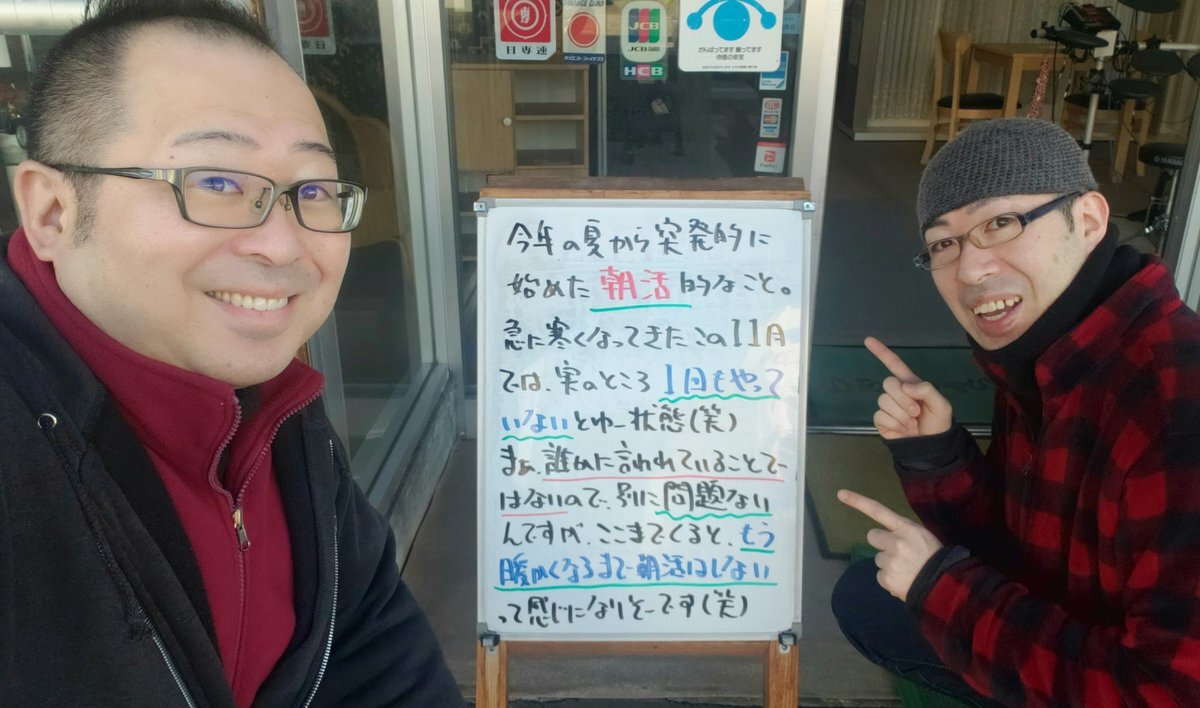 日専連
JCB
JCB CARD
HCB
がんばってます 願ってます
待遇の安定
PayPay
今年の夏から突発的に
始めた朝活的なこと。
急に寒くなってきたこの11月
では、実のところ1日もやって
いないとゆー状態(笑)
まぁ、誰かに言われていることで
はないので、別に問題ない
んですが、ここまでくると、もう
暖かくなるまで朝活はしない
って感じになりそーです(笑)